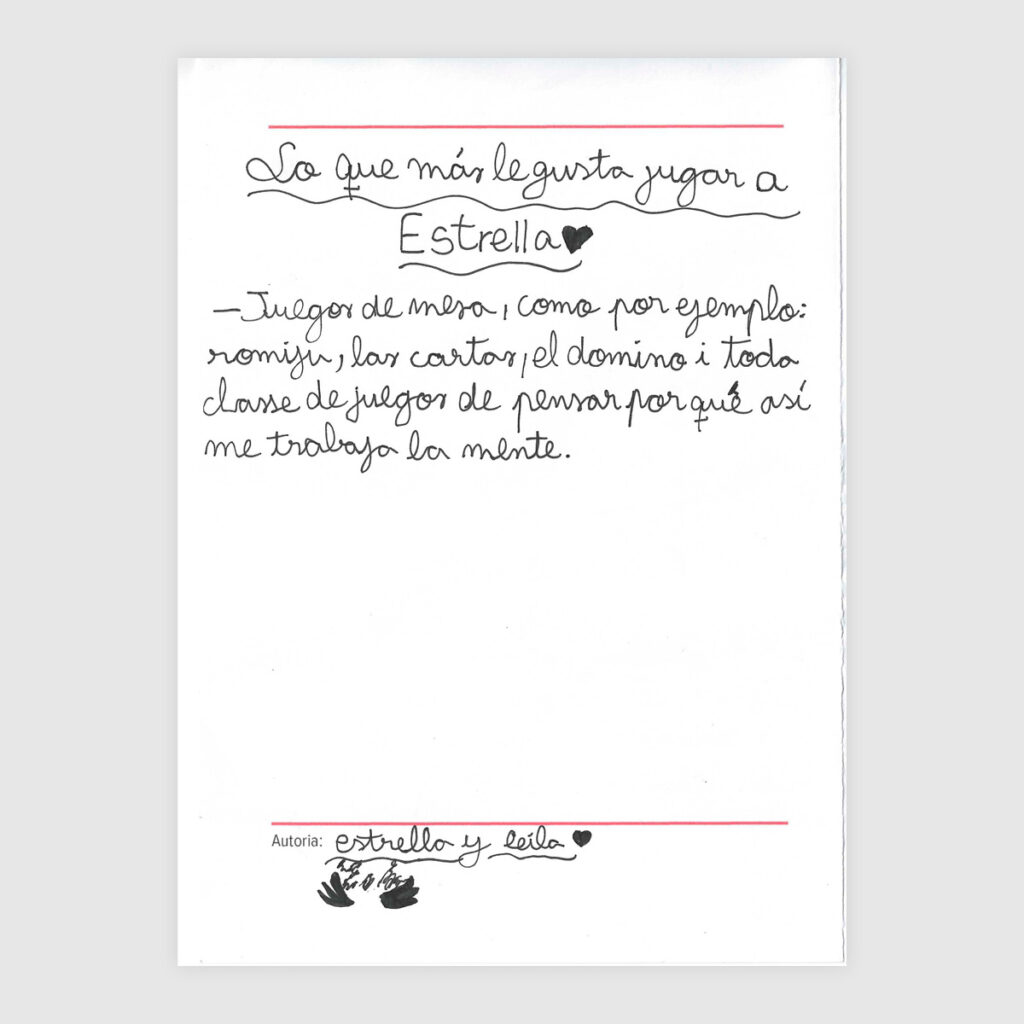 Lo que más le gusta jugar a
Estrella
-Juegos de mesa, como por ejemplo:
romiju, las cartas, el domino i toda
classe de juegos de pensar porqué así
me trabaja la mente.
Autoria: estrella y leíla